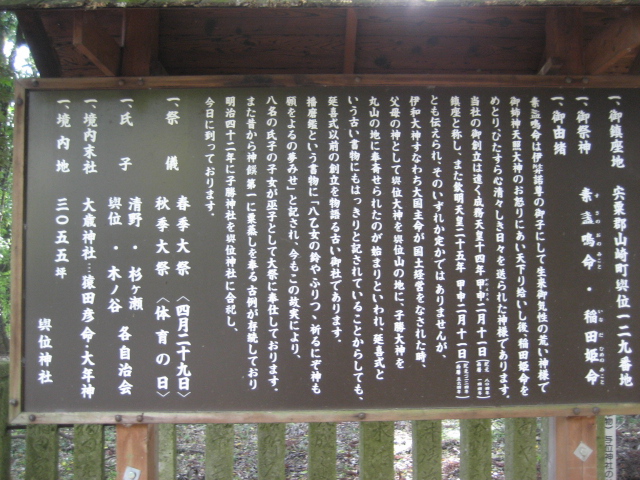 一、御鎮座地 宍粟郡山崎町與位一二九番地
一、御祭神 素盞嗚命・稲田姫命
一、御由緒
素盞嗚命は伊弉諾尊の御子にして生来御気性の荒い神様で
御姉神天照大神のお怒りにあい天下り給いし後、稲田姫命を
めとり、ひたすら心清々しき日々を送られた神様であります。
当社の御創立は遠く成務天皇十四年 甲申 二月十一日
鎮座と称し、また欽明天皇二十五年 甲申 二月十一日
とも伝えられ、そのいずれか定かではありませんが、
伊和大神すなわち大国主命が国土経営をなされた時、
父母の神として與位大神を與位山の地に、子勝大神を
丸山の地に奉斎せられたのが始まりといわれ、延喜式と
いう古い書物にもはっきりと記されていることからしても、
延喜式以前の創立を物語る古い御社であります。
播磨鑑という書物に「八乙女の鈴やふりつゝ祈るにぞ神も
願をよるの夢みせ」と記され、今もこの故実により、
八名の氏子の子女が巫子として大祭に奉仕しております。
また昔から神饌第一に粟蒸しを奉る古例が存続しており
明治四十二年に子勝神社を與位神社に合祀し、
今日に到っております。
一、祭儀 春季大祭〈四月二十九日〉
秋季大祭〈体育の日〉
一、氏子 清野・杉ヶ瀬
與位・木ノ谷 各自治会
一、境内末社 大歳神社…猿田彦命・大年神
一、境内地 三〇五五坪
與位神社